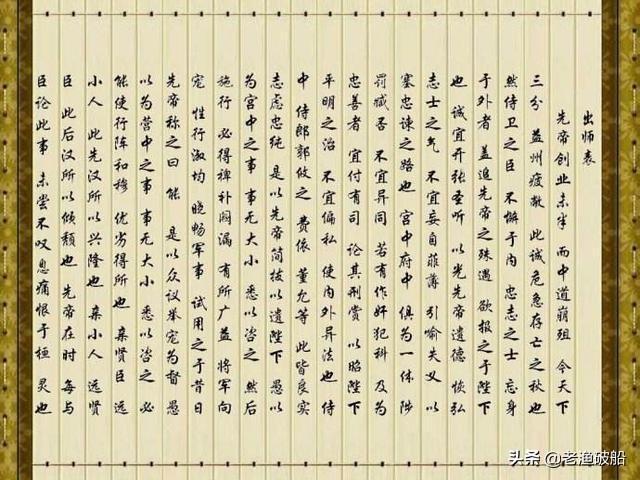 出师表
先帝创业未半 而中道崩殂 今天下
三分 益州疲敝 此诚危急存亡之秋也
然侍卫之臣 不懈于内 忠志之士 忘身
于外者 盖追先帝之殊遇 欲报之于陛下
也 诚宜开张圣听 以光先帝遗德 恢弘
志士之气 不宜妄自菲薄 引喻失义 以
塞忠谏之路也 宫中府中 俱为一体 陟
罚臧否 不宜异同 若有作奸犯科 及为
忠善者 宜付有司 论其刑赏 以昭陛下
平明之治 不宜偏私 使内外异法也 侍
中 侍郎郭攸之 费依 董允等 此皆良实
志虑忠纯 是以先帝简拔以遗陛下 愚以
为宫中之事 事无大小 悉以咨之 然后
施行 必得裨补阙漏 有所广益 将军向
宠 性行淑均 晓畅军事 试用之于昔日
先帝称之曰 能 是以众议举宠为督 愚
以为营中之事 事无大小 悉以咨之 必
能使行阵和穆 优劣得所也 亲贤臣 远
小人 此先汉所以兴隆也 亲小人 远贤
臣 此后汉所以倾颓也 先帝在时 每与
臣论此事 未尝不叹息痛恨于桓 灵也
头条 @老渔破船